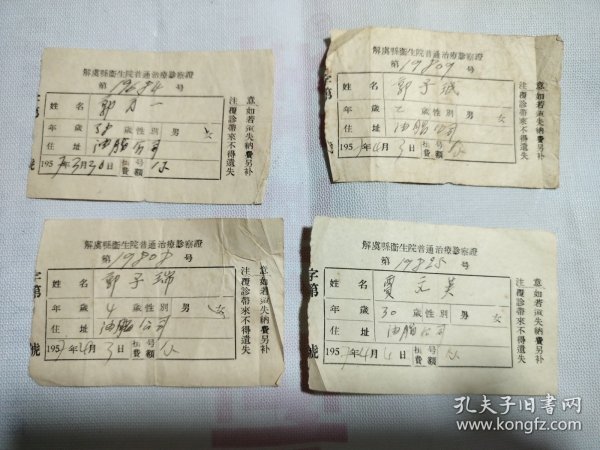 解虞縣衞生院普通治療診察證
第19684号
姓名 郭万一
年歲 38 歲性別 男 女
住址 油脂公司
195 年3月30日 掛号費額
注意 如若遺失納費另补
覆診帶來不得遺失
字第 號
解虞縣衞生院普通治療診察證
第19809号
姓名 郭子
年歲 乙 歲性別 男 女
住址 油脂公司
195 年4月3日 掛号費額
注意 如若遺失納費另补
覆診帶來不得遺失
字第 號
解虞縣衞生院普通治療診察證
第19808号
姓名 郭子瑞
年歲 4 歲性別 男 女
住址 油脂公司
195 年4月3日 掛号費額
注意 如若遺失納費另补
覆診帶來不得遺失
字第 號
解虞縣衞生院普通治療診察證
第19825号
姓名 賈元英
年歲 30 歲性別 男 女
住址 油脂公司
195 年4月4日 掛号費額
注意 如若遺失納費另补
覆診帶來不得遺失
字第 號
孔夫子旧书网
www.kongfz.com